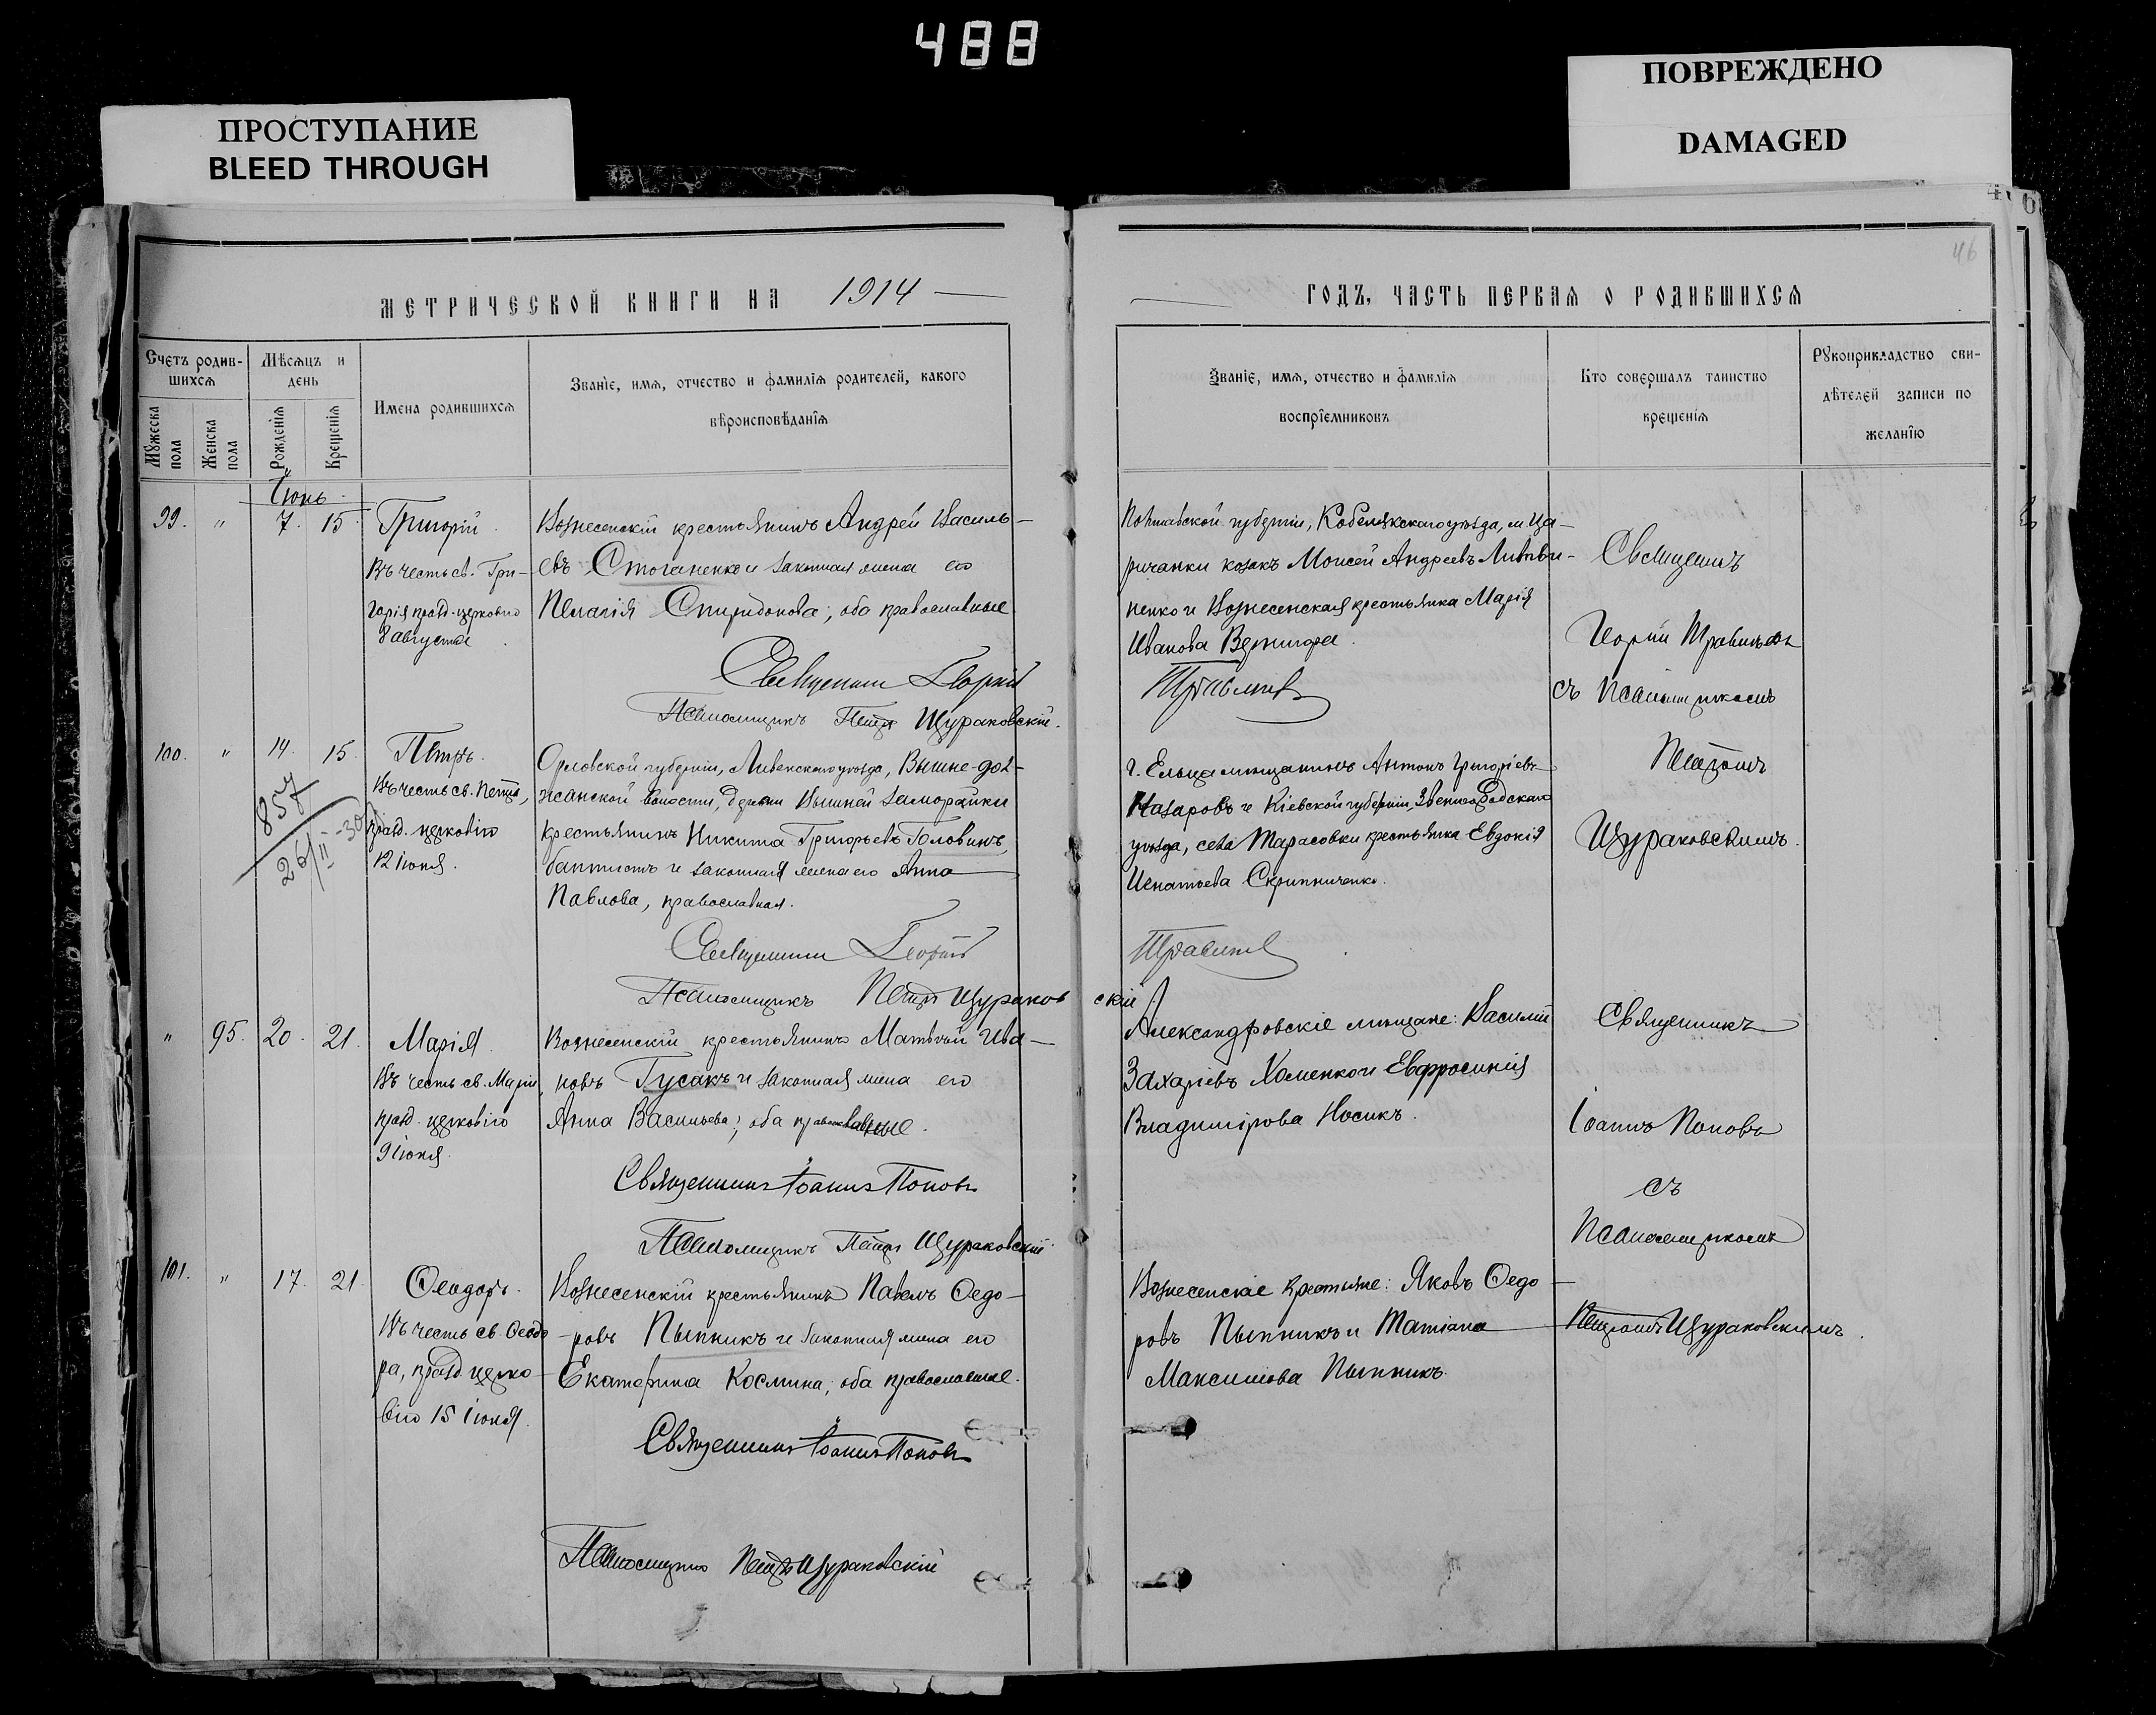 488
ПРОСТУПАНИЕ
BLEED THROUGH
ПОВРЕЖДЕНО
DAMAGED
46
МЕТРИЧЕСКОЙ КНИГИ НА 1914
ГОДЪ, ЧАСТЬ ПЕРВАЯ О РОДИВШИХСЯ
Счетъ родив-
шихся
Мужеска пола
Женска пола
Мѣсяцъ и
день
Рожденія
Крещенія
Имена родившихся
Званіе, имя, отчество и фамилія родителей, какого
вѣроисповѣданія
Званіе, имя, отчество и фамилія
воспріемниковъ
Кто совершалъ таинство
крещенія
Рукоприкладство сви-
дѣтелей записи по
желанію
Іюнь
99. " 7. 15 Григорій.
Въ честь св. Гри-
горія празд. церковію
8 августа
Вознесенскій крестьянинъ Андрей Василь-
евъ Стоганенко и законная жена его
Пелагія Спиридонова, оба православные
Священникъ Георгій
Псаломщикъ Петръ Щураковскій.
Полтавской губерніи, Кобелякскаго уѣзда, м. Ца-
ричанки козакъ Моисей Андреевъ Литви-
ненко и Вознесенская крестьянка Марія
Иванова Вернигора.
Травлевъ
Священникъ
съ псаломщикомъ
Петромъ
Щураковскимъ.
100. " 14. 15 Петръ.
Въ честь св. Петра,
празд. церковію
12 іюня.
857
26/II-30
Орловской губерніи, Ливенскаго уѣзда, Вышне-дол-
жанской волости, деревни Вышней Заморайки
крестьянинъ Никита Григорьевъ Головинъ,
баптистъ и законная жена его Анна
Павлова, православная.
Священникъ Георгій
Псаломщикъ Петръ Щураковскій.
г. Ельца мѣщанинъ Антонъ Григоріевъ
Назаровъ и Кіевской губерніи, Звенигородскаго
уѣзда, села Тарасовки крестьянка Евдокія
Игнатьева Скрипниченко.
" 95. 20. 21. Марія.
Въ честь св. Маріи,
празд. церковію
9 іюня.
Вознесенскій крестьянинъ Матвѣй Ива-
новъ Гусакъ и законная жена его
Анна Васильева, оба православные.
Священникъ Іоаннъ Поповъ
Псаломщикъ Петръ Щураковскій.
Александровскіе мѣщане: Василій
Захаріевъ Хоменко и Евфросинія
Владимірова Носикъ.
Священникъ
Іоаннъ Поповъ
съ
псаломщикомъ
Петромъ Щураковскимъ.
101. " 17. 21. Ѳеодоръ.
Въ честь св. Ѳеодо-
ра, празд. церко-
вію 15 іюня.
Вознесенскій крестьянинъ Павелъ Ѳедо-
ровъ Пыпникъ и законная жена его
Екатерина Космина, оба православные.
Священникъ Іоаннъ Поповъ
Псаломщикъ Петръ Щураковскій
Вознесенскіе крестьяне: Яковъ Ѳедо-
ровъ Пыпникъ и Татіана
Максимова Пыпникъ.